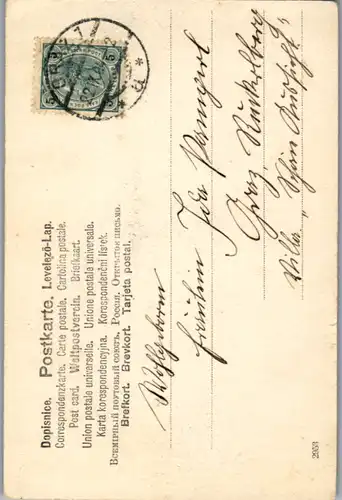 Dopisnice. Postkarte. Levelező-Lap.
Correspondenzkarte. Carte postale. Cartolina postale.
Post card. Weltpostverein. Briefkaart.
Union postale universelle. Unione postale universale.
Karta korespondencyjna. Korespondenční lístek.
Всемірный почтовый союзъ. Россія. Открытое письмо.
Brefkort. Brevkort. Tarjeta postal.
GRAZ 1
5 5
Wohlgeborn
Fräulein Ida
Graz, Ruckerlberg
Villa „Schöne Aussicht“
295/3